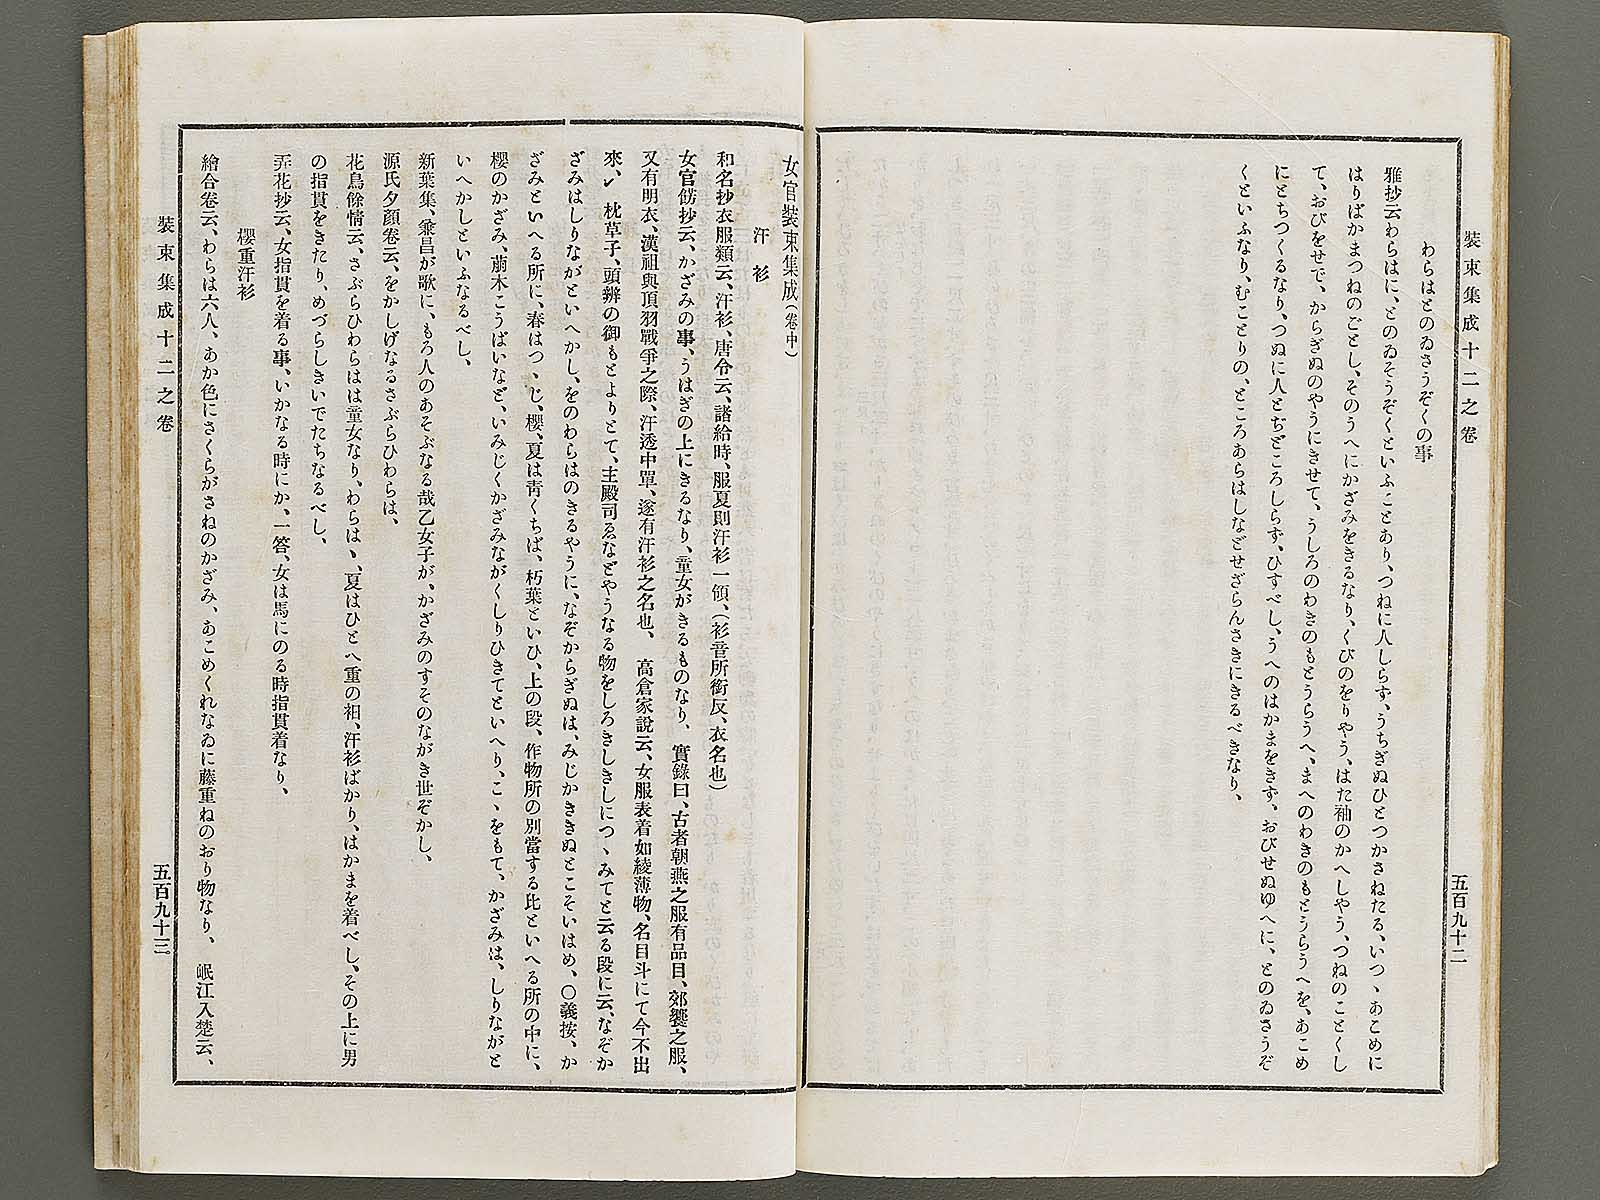 裝束集成十二之卷
五百九十二
わらはとのゐさうぞくの事
雅抄云わらはに、とのゐそうぞくといふことあり、つねに人しらず、うちぎぬひとつかさねたる、いつゝあこめに
はりばかまつねのごとし、そのうへにかざみをきるなり、くびのをりやう、はた袖のかへしやう、つねのことくし
て、おびをせで、からぎぬのやうにきせて、うしろのわきのもとうらうへ、まへのわきのもとうらうへを、あこめ
にとちつくるなり、つぬに人とぢどころしらず、ひすべし、うへのはかまをきず、おびせぬゆへに、とのゐさうぞ
くといふなり、むことりの、ところあらはしなどせざらんさきにきるべきなり、
女官裝束集成（卷中）
汗衫
和名抄衣服類云、汗衫、唐令云、諸給時、服夏則汗衫一領、（衫音所銜反、衣名也）
女官餝抄云、かざみの事、うはぎの上にきるなり、童女がきるものなり、　實錄曰、古者朝燕之服有品目、郊饗之服、
又有明衣、漢祖與項羽戰爭之際、汗透中單、遂有汗衫之名也、　高倉家說云、女服表着如綾薄物、名目斗にて今不出
來、　枕草子、頭辨の御もとよりとて、主殿司ゑなどやうなる物をしろきしきしにつゝみてと云る段に云、なぞか
ざみはしりながといへかし、をのわらはのきるやうに、なぞからぎぬは、みじかききぬとこそいはめ、〇義按、か
ざみといへる所に、春はつゝじ、櫻、夏は靑くちば、朽葉といひ、上の段、作物所の別當する比といへる所の中に、
櫻のかざみ、萠木こうばいなど、いみじくかざみながくしりひきてといへり、こゝをもて、かざみは、しりながと
いへかしといふなるべし、
新葉集、兼昌が歌に、もろ人のあそぶなる哉乙女子が、かざみのすそのながき世ぞかし、
源氏夕顏卷云、をかしげなるさぶらひわらは、
花鳥餘情云、さぶらひわらはは童女なり、わらはゝ、夏はひとへ重の袙、汗衫ばかり、はかまを着べし、その上に男
の指貫をきたり、めづらしきいでたちなるべし、
弄花抄云、女指貫を着る事、いかなる時にか、一答、女は馬にのる時指貫着なり、
櫻重汗衫
繪合卷云、わらは六人、あか色にさくらがさねのかざみ、あこめくれなゐに藤重ねのおり物なり、　岷江入楚云、
裝束集成十二之卷
五百九十三